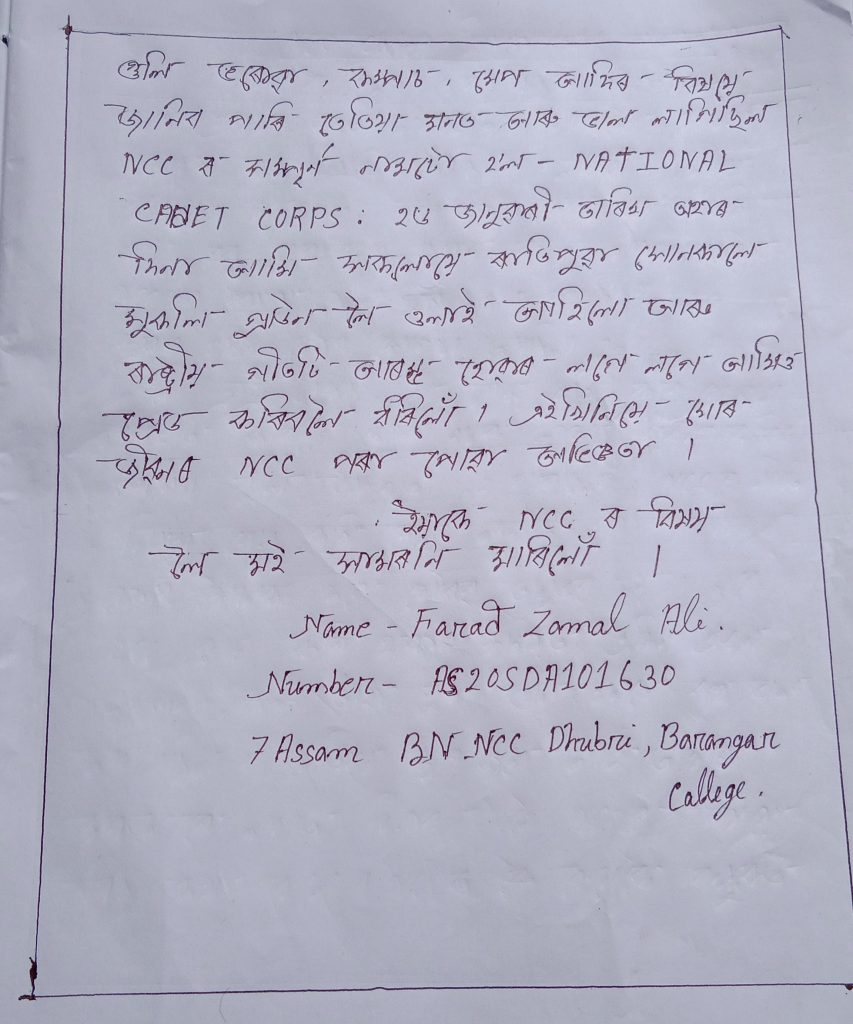 গুলি ভৰোৱা, কম্পাচ, মেপ আদিৰ বিষয়ে
জানিব পাৰি তেতিয়া মনত আৰু ভাল লাগিছিল
NCC ৰ সম্পূৰ্ন নামটো হ'ল - NATIONAL
CADET CORPS: ২৬ জানুৱাৰী তাৰিখ অহাৰ
দিনা আমি সকলোয়ে ৰাতিপুৱা সোনকালে
মুকলি গ্ৰাউন লৈ ওলাই আহিলো আৰু
ৰাষ্ট্ৰীয় গীতটি আৰম্ভ হোৱাৰ লগে লগে আমিও
প্ৰেড কৰিবলৈ ধৰিলোঁ। এইখিনিয়ে মোৰ
জীৱনৰ NCC পৰা পোৱা অভিজ্ঞতা।
ইয়াকে NCC ৰ বিষয়
লৈ মই সামৰনি মাৰিলোঁ।
Name - Farad Zamal Ali.
Number - AS20SDA101630
7 Assam BN NCC Dhubri, Barangar
Callege.